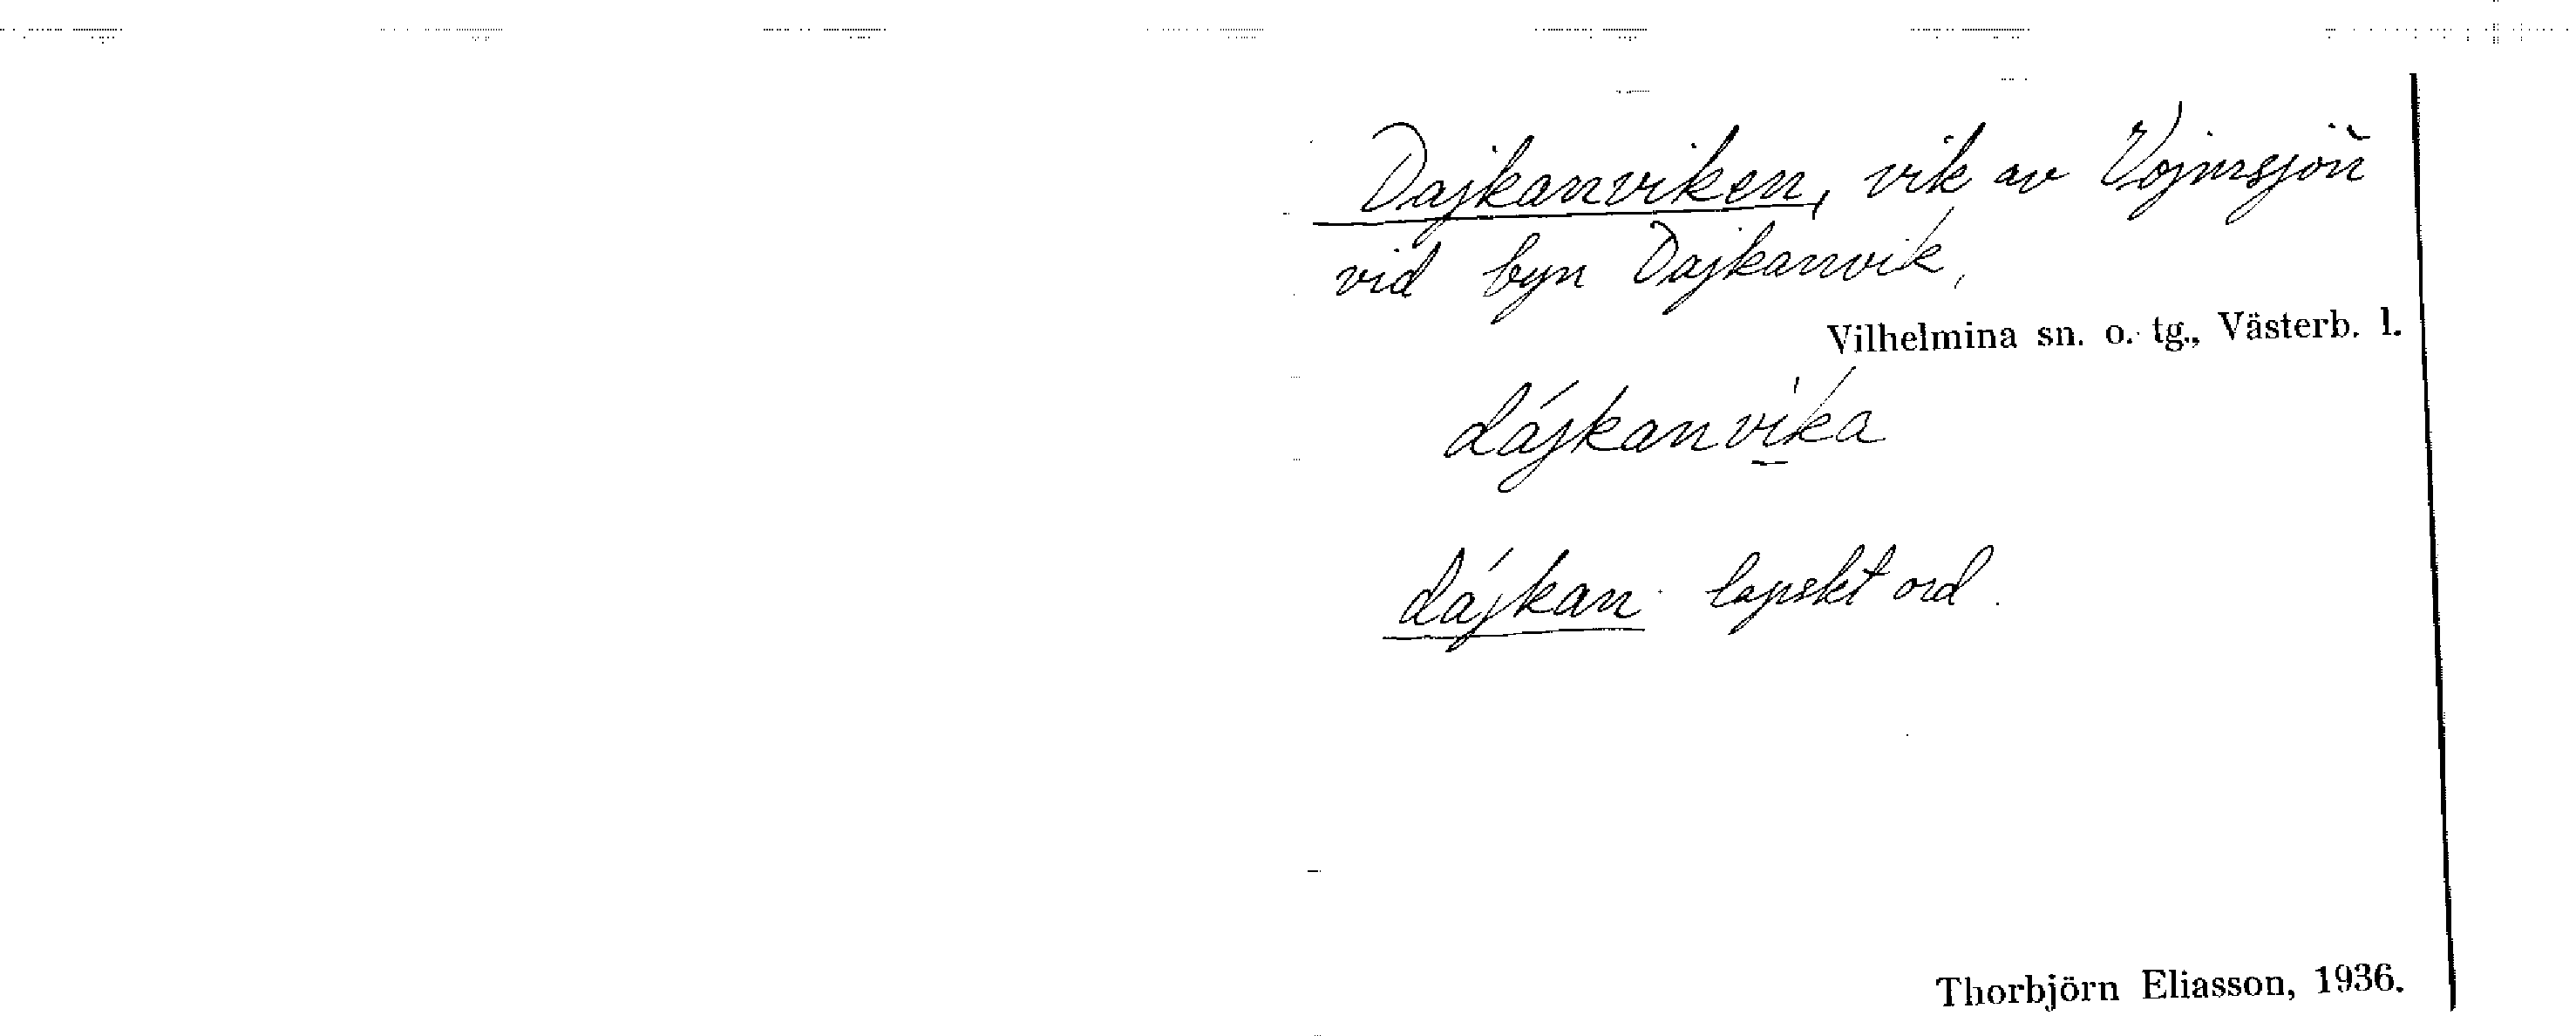 Dajkanviken, vik av Vojmsjön
vid byn Dajkanvik,
Vilhelmina sn. o. tg., Västerb. l.
dájkanvika
dájkan lapskt ord.
Thorbjörn Eliasson, 1936.